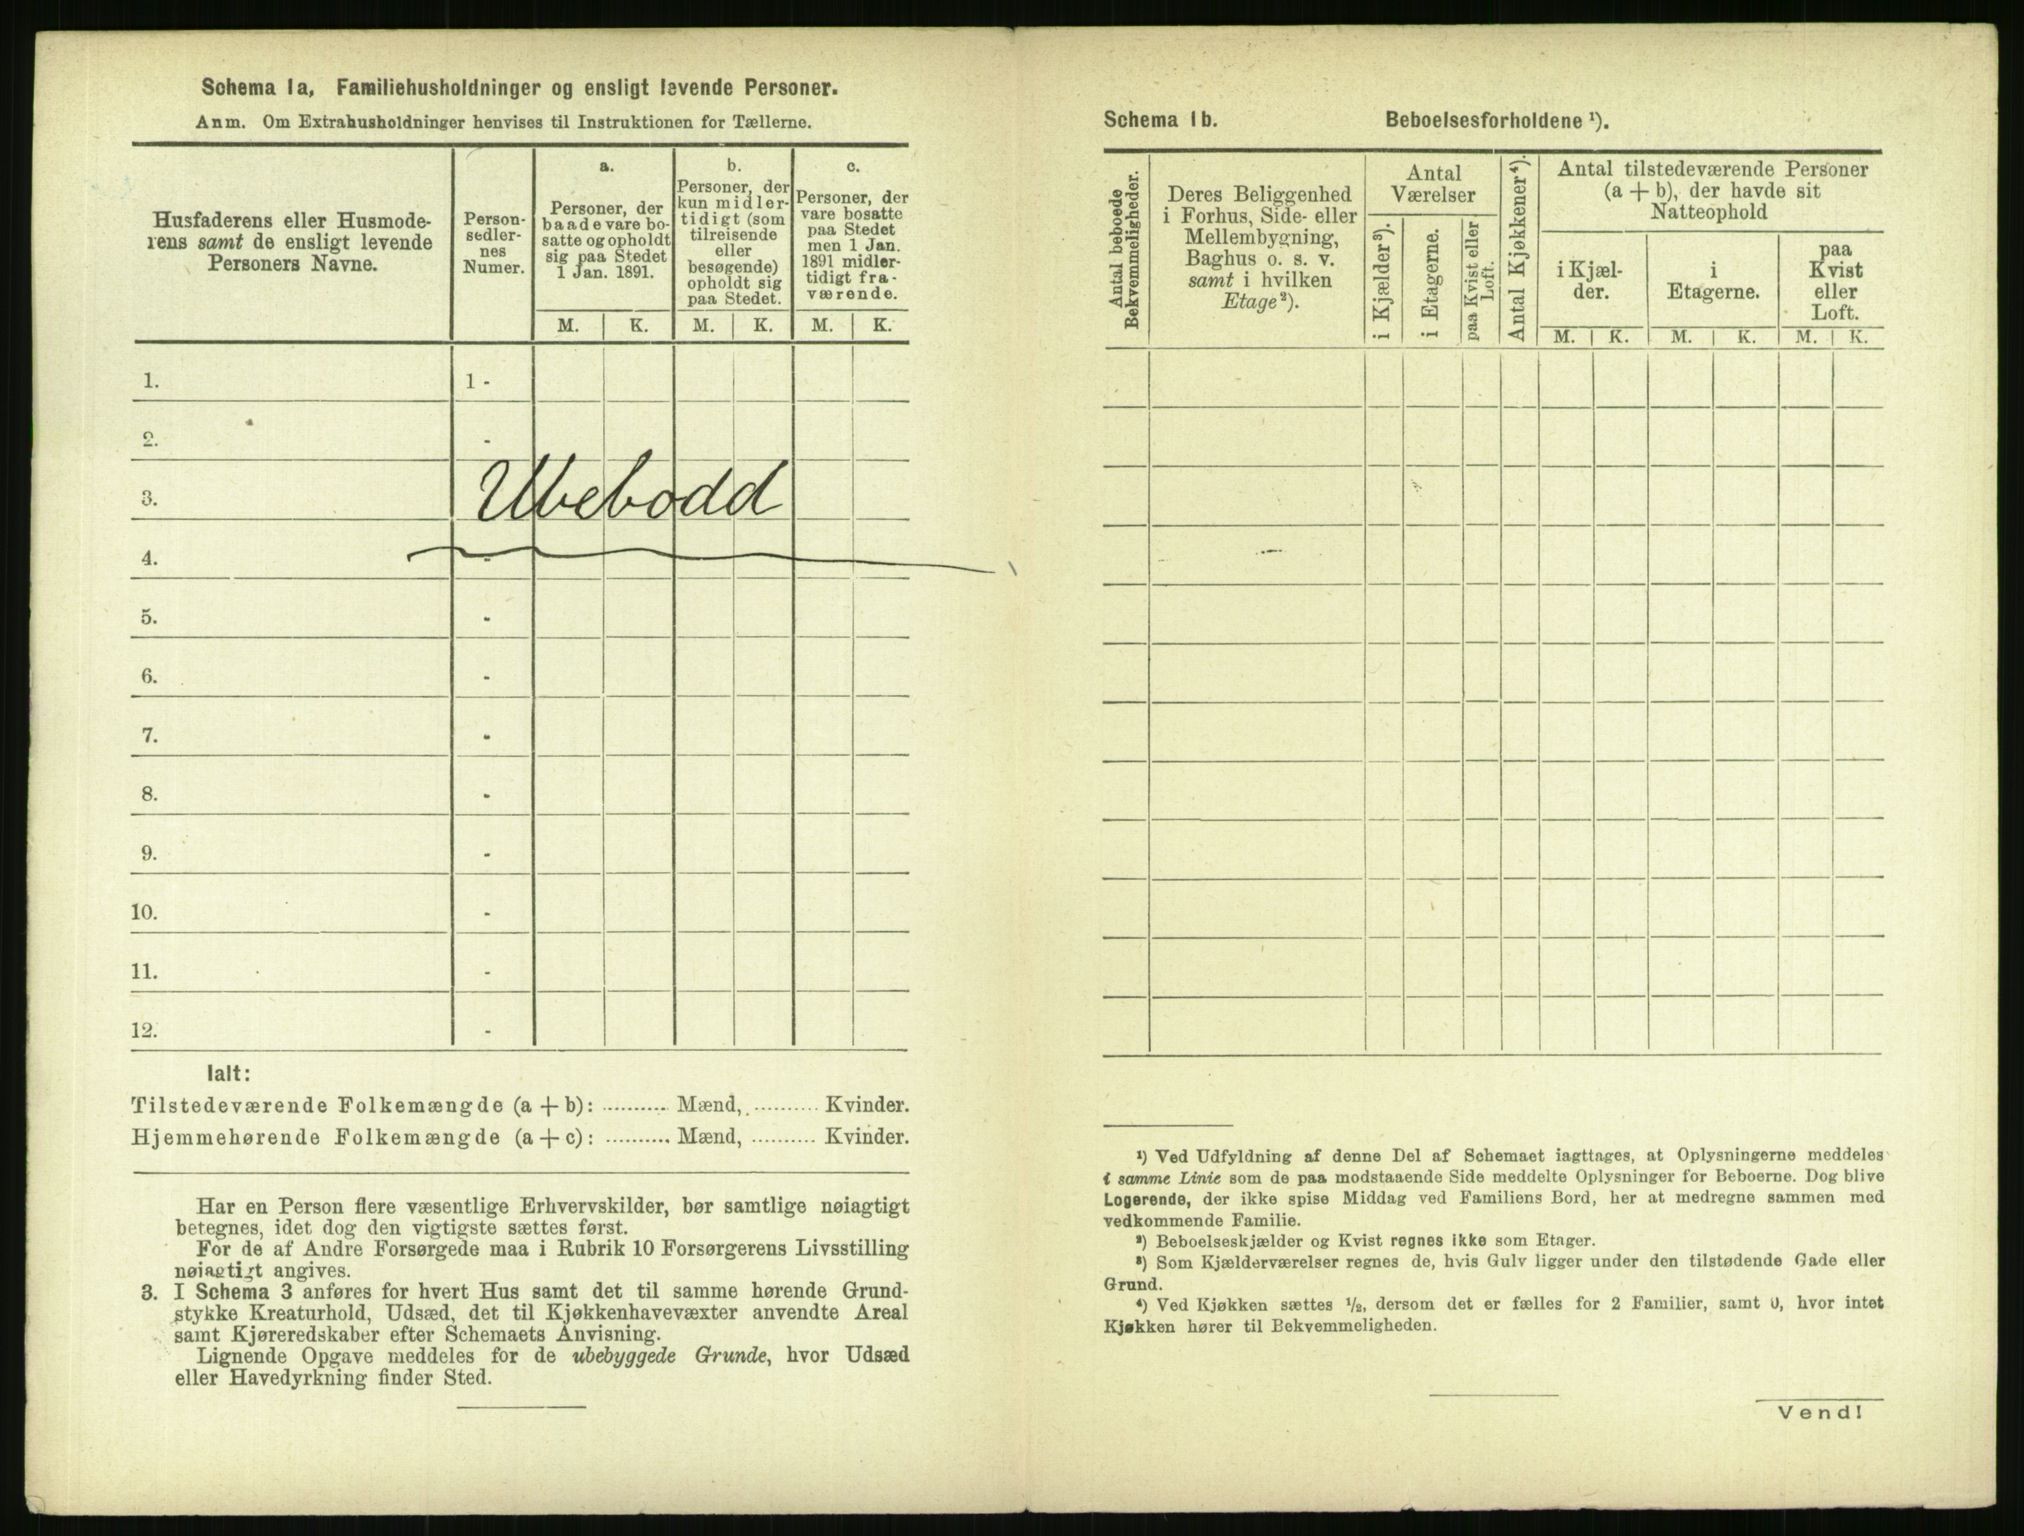 Schema 1a, Familiehusholdninger og ensligt levende Personer.
Anm. Om Extrahusholdninger henvises til Instruktionen for Tællerne.
Husfaderens eller Husmode-
rens samt de ensligt levende
Personers Navne.
Person-
sedler-
nes
Numer.
a.
Personer, der
baade vare bo-
satte og opholdt
sig paa Stedet
1 Jan. 1891.
b.
Personer, der
kun midler-
tidigt (som
tilreisende
eller
besøgende)
opholdt sig
paa Stedet.
c.
Personer, der
vare bosatte
paa Stedet
men 1 Jan.
1891 midler-
tidigt fra-
værende.
M. K. M. K. M. K.
1. 1 -
2. -
3. Ubebodd
4. -
5. -
6. -
7. -
8. -
9. -
10. -
11. -
12. -
Ialt:
Tilstedeværende Folkemængde (a + b): .......... Mænd, .......... Kvinder.
Hjemmehørende Folkemængde (a + c): .......... Mænd, .......... Kvinder.
Har en Person flere væsentlige Erhvervskilder, bør samtlige nøiagtigt
betegnes, idet dog den vigtigste sættes først.
For de af Andre Forsørgede maa i Rubrik 10 Forsørgerens Livsstilling
nøiagtigt angives.
3. I Schema 3 anføres for hvert Hus samt det til samme hørende Grund-
stykke Kreaturhold, Udsæd, det til Kjøkkenhavevæxter anvendte Areal
samt Kjøreredskaber efter Schemaets Anvisning.
Lignende Opgave meddeles for de ubebyggede Grunde, hvor Udsæd
eller Havedyrkning finder Sted.
Schema 1b. Beboelsesforholdene ¹).
Antal beboede
Bekvemmeligheder.
Deres Beliggenhed
i Forhus, Side- eller
Mellembygning,
Baghus o. s. v.
samt i hvilken
Etage ²).
Antal
Værelser
i Kjælder ³).
i Etagerne.
paa Kvist eller
Loft.
Antal Kjøkkener ⁴).
Antal tilstedeværende Personer
(a + b), der havde sit
Natteophold
i Kjæl-
der.
i
Etagerne.
paa
Kvist
eller
Loft.
M. K. M. K. M. K.
¹) Ved Udfyldning af denne Del af Schemaet iagttages, at Oplysningerne meddeles
i samme Linie som de paa modstaaende Side meddelte Oplysninger for Beboerne. Dog blive
Logerende, der ikke spise Middag ved Familiens Bord, her at medregne sammen med
vedkommende Familie.
²) Beboelseskjælder og Kvist regnes ikke som Etager.
³) Som Kjælderværelser regnes de, hvis Gulv ligger under den tilstødende Gade eller
Grund.
⁴) Ved Kjøkken sættes ½, dersom det er fælles for 2 Familier, samt 0, hvor intet
Kjøkken hører til Bekvemmeligheden.
Vend!